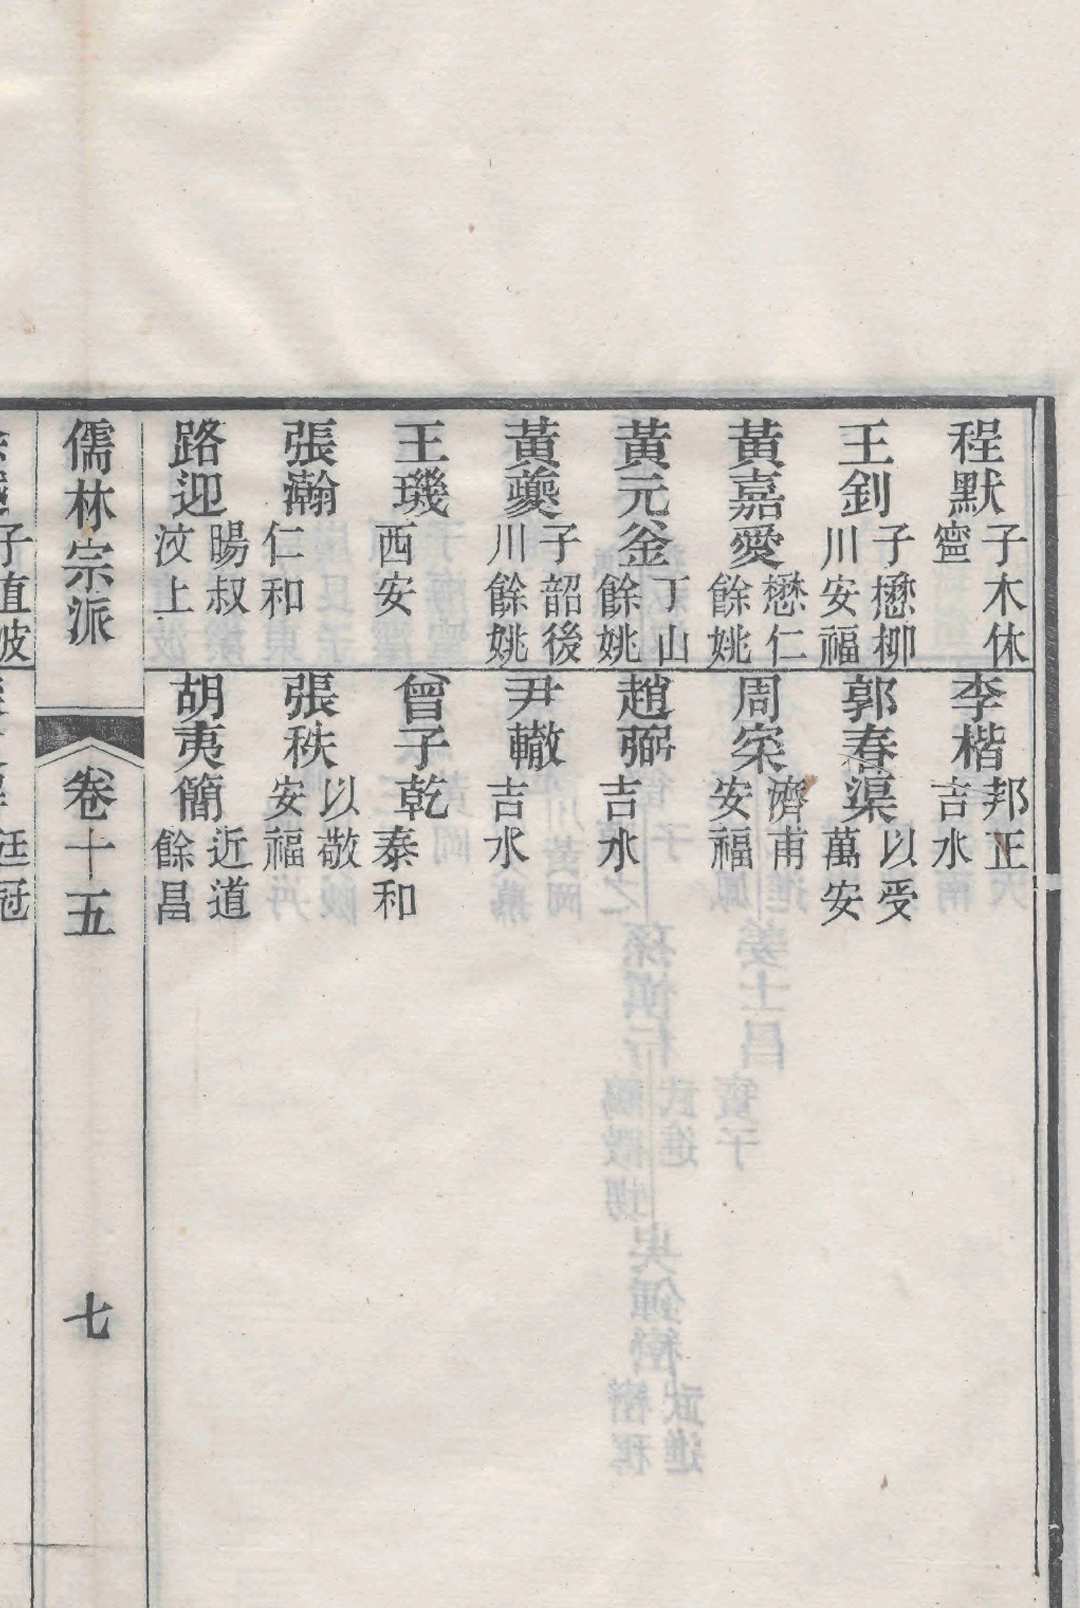 程默 子木休寧 李楷 邦正吉水
王釗 子懋柳川安福 郭春渠 以受萬安
黃嘉愛 懋仁餘姚 周寀 濟甫安福
黃元釜 丁山餘姚 趙弼 吉水
黃夔 子韶後川餘姚 尹轍 吉水
王璣 西安 曾子乾 泰和
張瀚 仁和 張秩 以敬安福
路迎 暘叔汶上 胡夷簡 近道餘昌
儒林宗派 卷十五 七